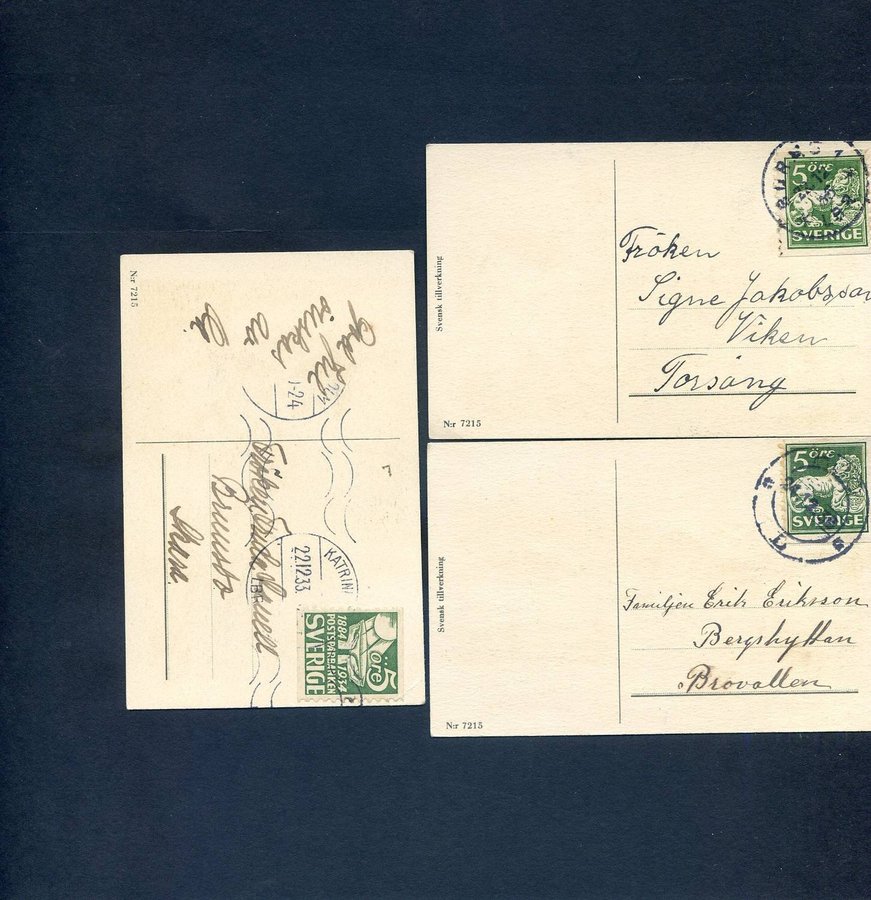 N:r 7215
God Jul
önskas
av
1-24
KATRIN
22.12.33
Fröken
Brunsta
1884 1934
POSTSPARBANKEN
SVERIGE
5 öre
Svensk tillverkning
N:r 7215
5 öre
SVERIGE
Fröken
Signe Jakobsson
Viken
Torsång
Svensk tillverkning
N:r 7215
5 öre
SVERIGE
Familjen Erik Eriksson
Bergshyttan
Brovallen